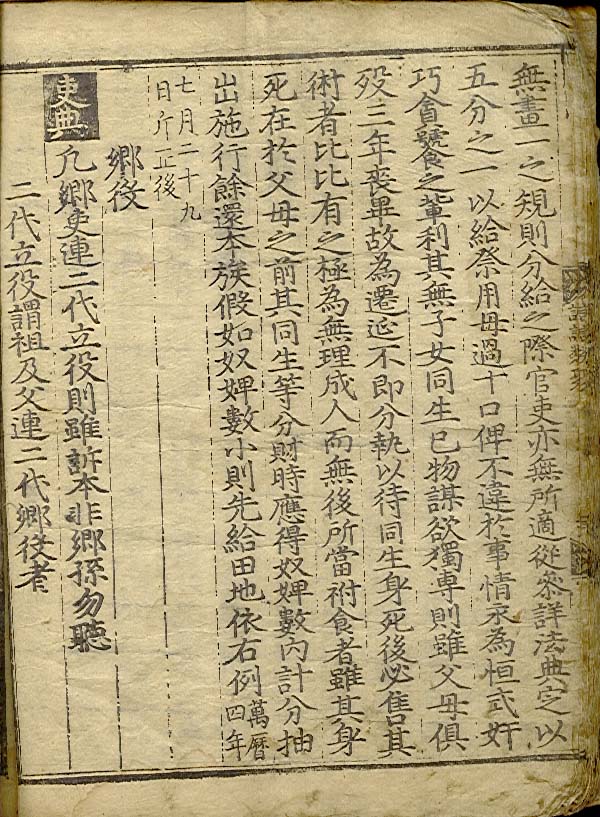 無畫一之規則分給之際官吏亦無所適從叅詳法典定以
五分之一以給祭用毋過十口俾不違於事情永為恒式奸
巧會饕之軰利其無子女同生已物謀欲獨專則雖父母俱
歿三年喪畢故為遷延不即分執以待同生身死後必售其
術者比比有之極為無理成人而無後所當祔食者雖其身
死在於父母之前其同生等分財時應得奴婢數內計分抽
出施行餘還本族假如奴婢數小則先給田地依右例萬曆四年
七月二十九日斤正後
鄕役
吏典
凢鄕吏連二代立役則雖訴本非鄕孫勿聽
二代立役謂祖及父連二代鄕役者